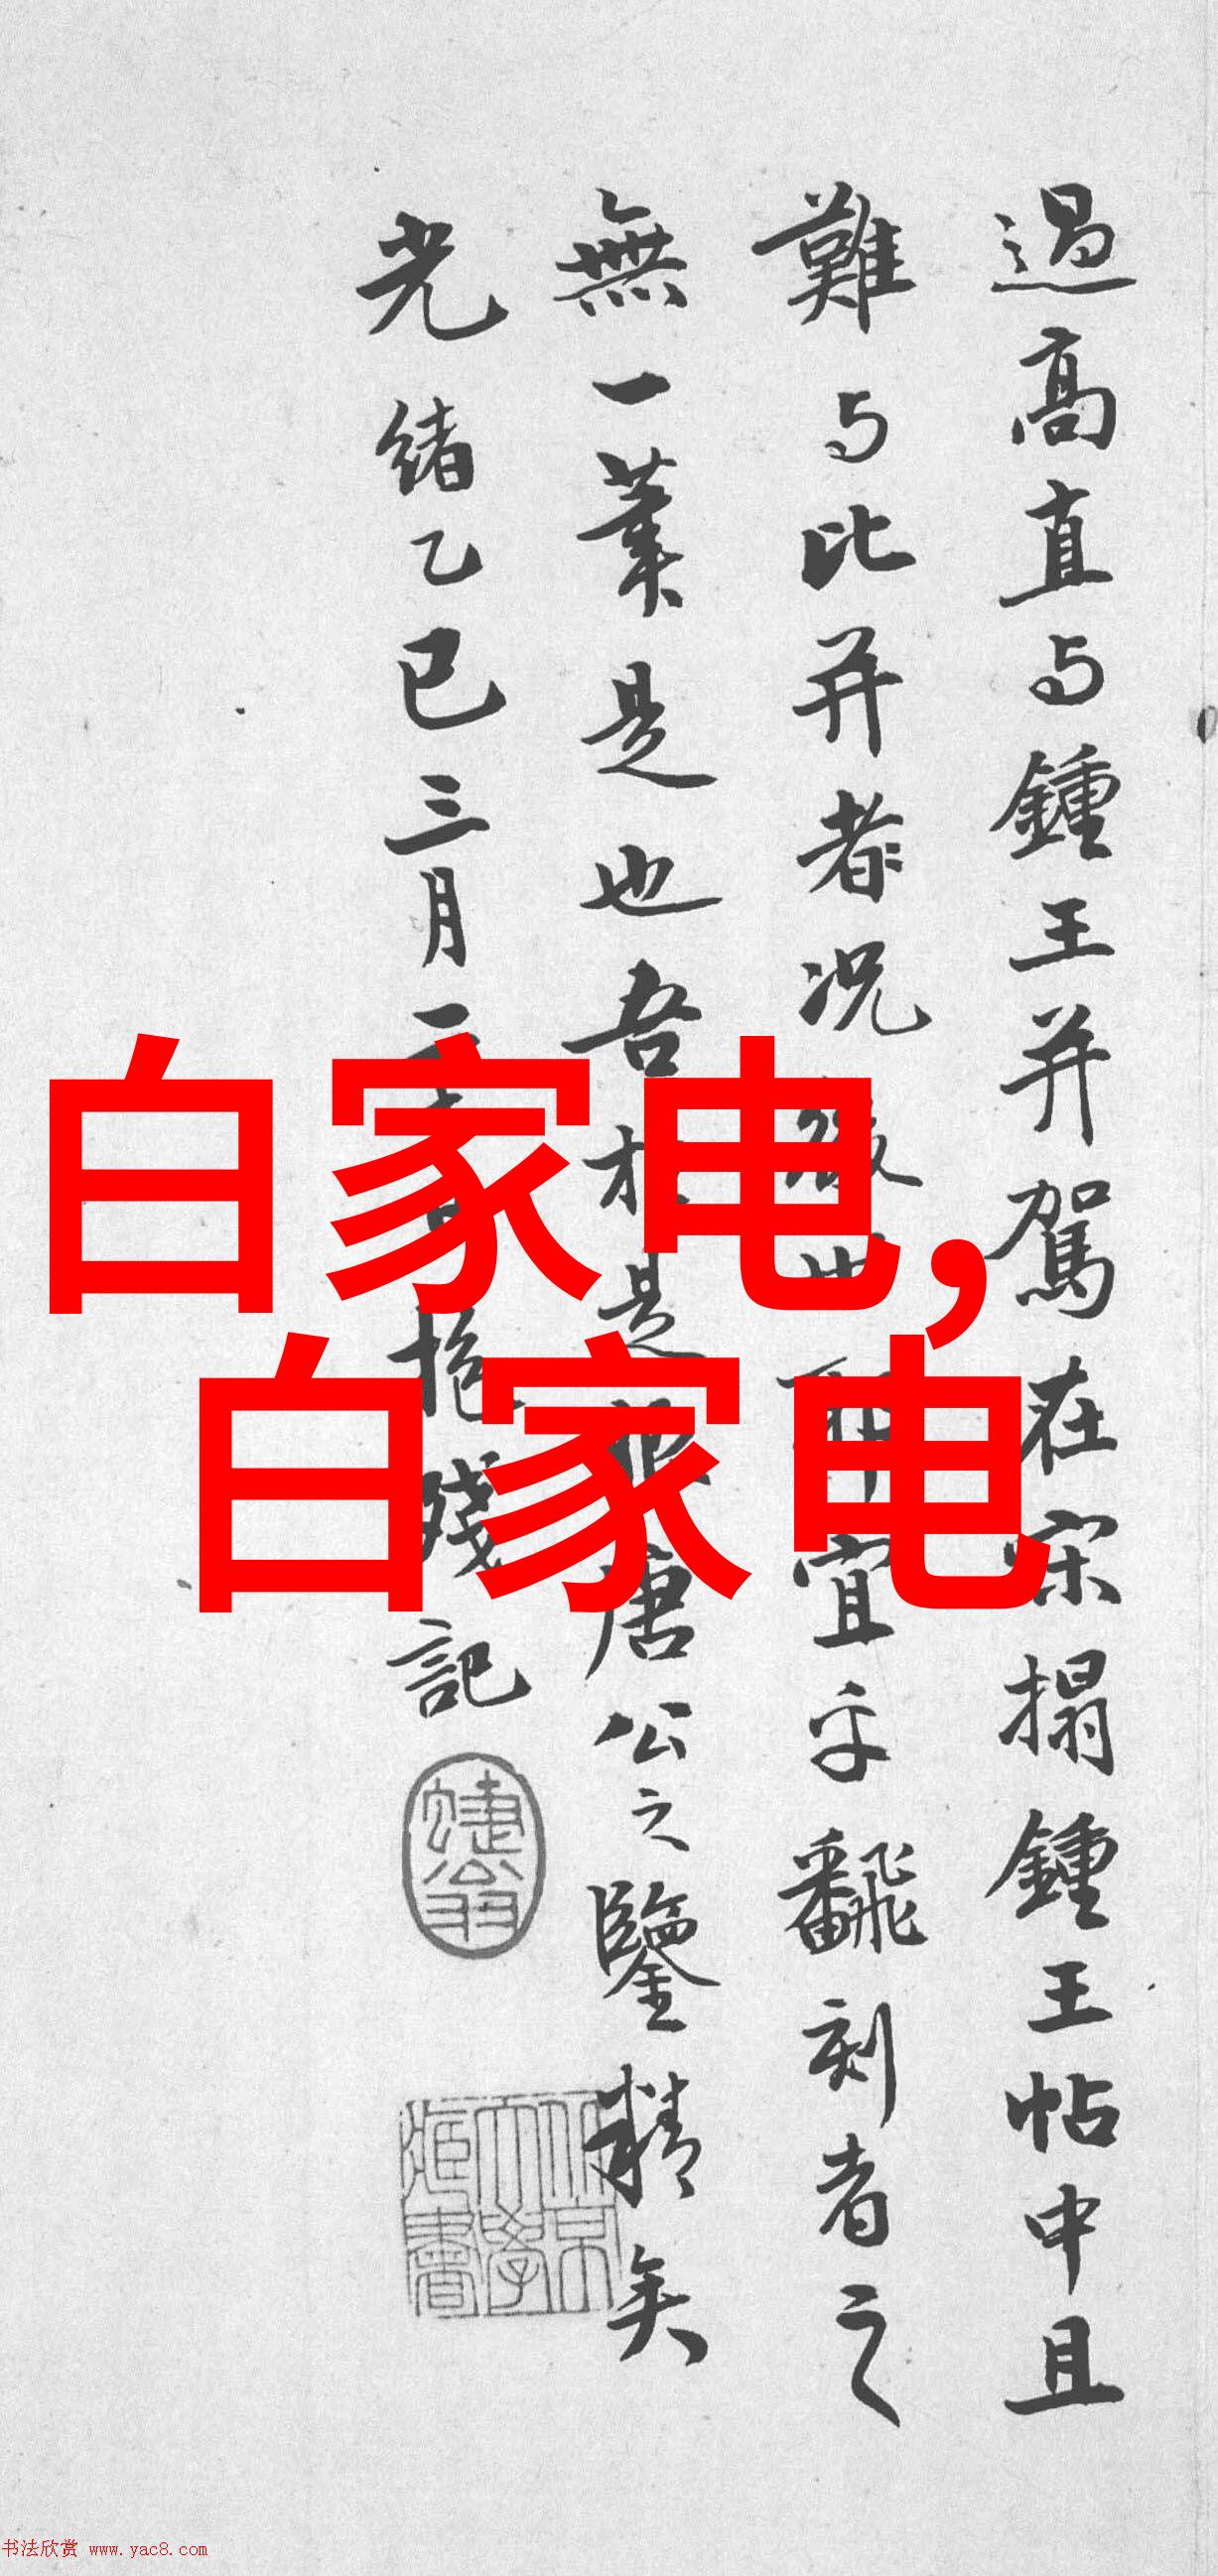 過高直与鍾王并駕在宋搨鍾王帖中且
難与比并者況 宜乎翻刻者之
無一筆是也吾 是 唐公之鑒精矣
光緒乙巳三月 抱殘記
白家电,
白家电
书法欣赏 www.yac8.com